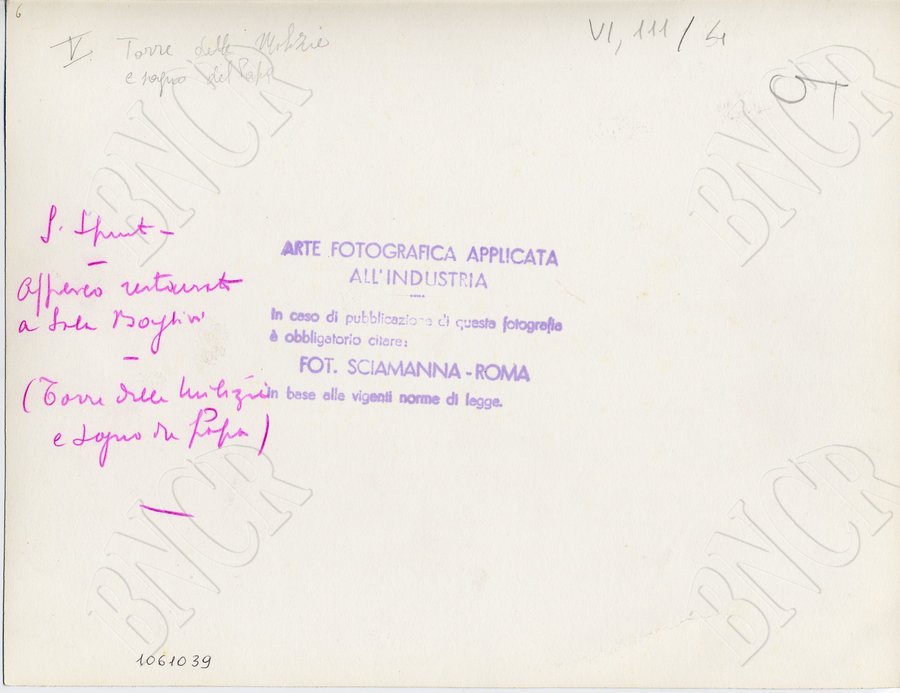 6
V. Torre delle Milizie
e sogno del Papa
VI, 111 / 51
S. Spirito –
–
Affresco restaurato
a Sala Baglivi
–
(Torre delle Milizie
e sogno del Papa)
—
ARTE FOTOGRAFICA APPLICATA
ALL'INDUSTRIA
In caso di pubblicazione di questa fotografia
è obbligatorio citare:
FOT. SCIAMANNA - ROMA
in base alle vigenti norme di legge.
1061039
BNCR
BNCR
BNCR
BNCR